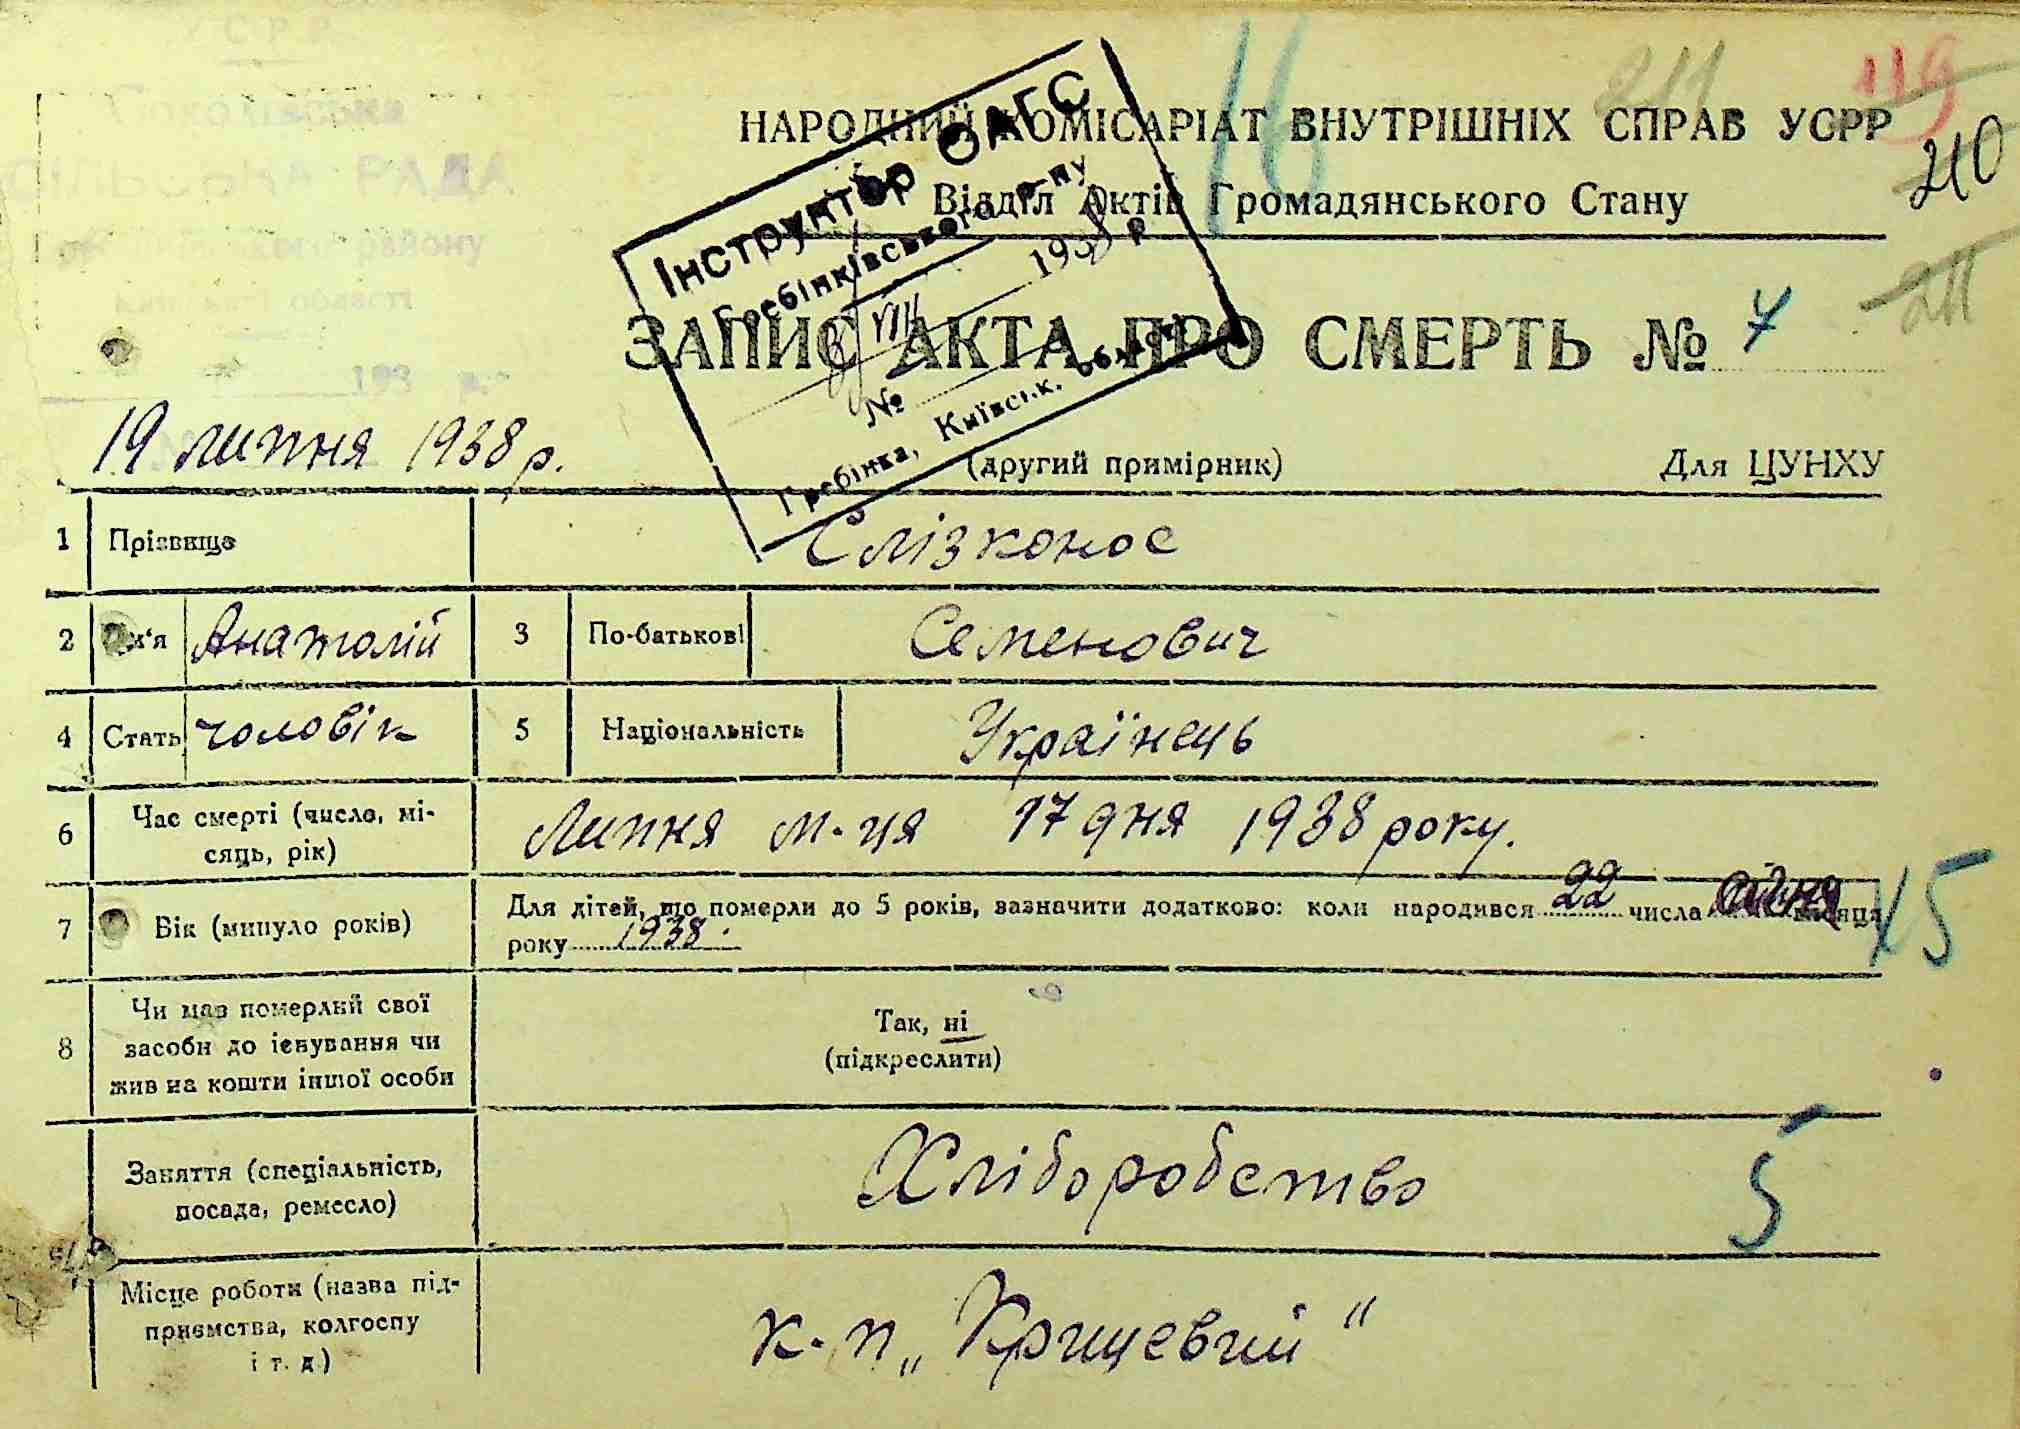 УСРР
СІЛЬСЬКА РАДА
району
області
193 р.
16
211
119
210
211
НАРОДНИЙ КОМІСАРІАТ ВНУТРІШНІХ СПРАВ УСРР
Відділ Актів Громадянського Стану
Інструктор ОАГС
Гребінківського р-ну
VIII 1938 р
№
Гребінка, Київськ. області
ЗАПИС АКТА ПРО СМЕРТЬ № 7
19 липня 1938 р.
(другий примірник) Для ЦУНХУ
1 Прізвище Слізконос
2 Ім'я Анатолій 3 По-батькові Семенович
4 Стать чоловік 5 Національність Українець
6 Час смерті (число, мі-
сяць, рік) Липня м-ця 17 дня 1938 року.
7 Вік (минуло років) Для дітей, що померли до 5 років, зазначити додатково: коли народився 22 числа місяця
року 1938.
15
8 Чи мав померлий свої
засоби до існування чи
жив на кошти іншої особи
Так, ні
(підкреслити)
Заняття (спеціальність,
посада, ремесло) Хліборобство
5
Місце роботи (назва під-
приємства, колгоспу
і т. д.)
к-п „Крищевий"